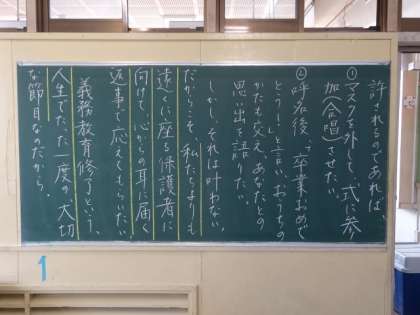 許されるのであれば、
①マスクを外して、式に参
加(合唱)させたい。
②呼名後、「卒業おめで
とう!」と言い、おうちの
かたも交え、あなたとの
思い出を語りたい。
しかし、それは叶わない。
だからこそ、私たちよりも
遠くに座る保護者に
向けて、心からの耳に届く
返事で応えてもらいたい
義務教育修了という、
人生でたった一度の、大切
な節目なのだから。
1